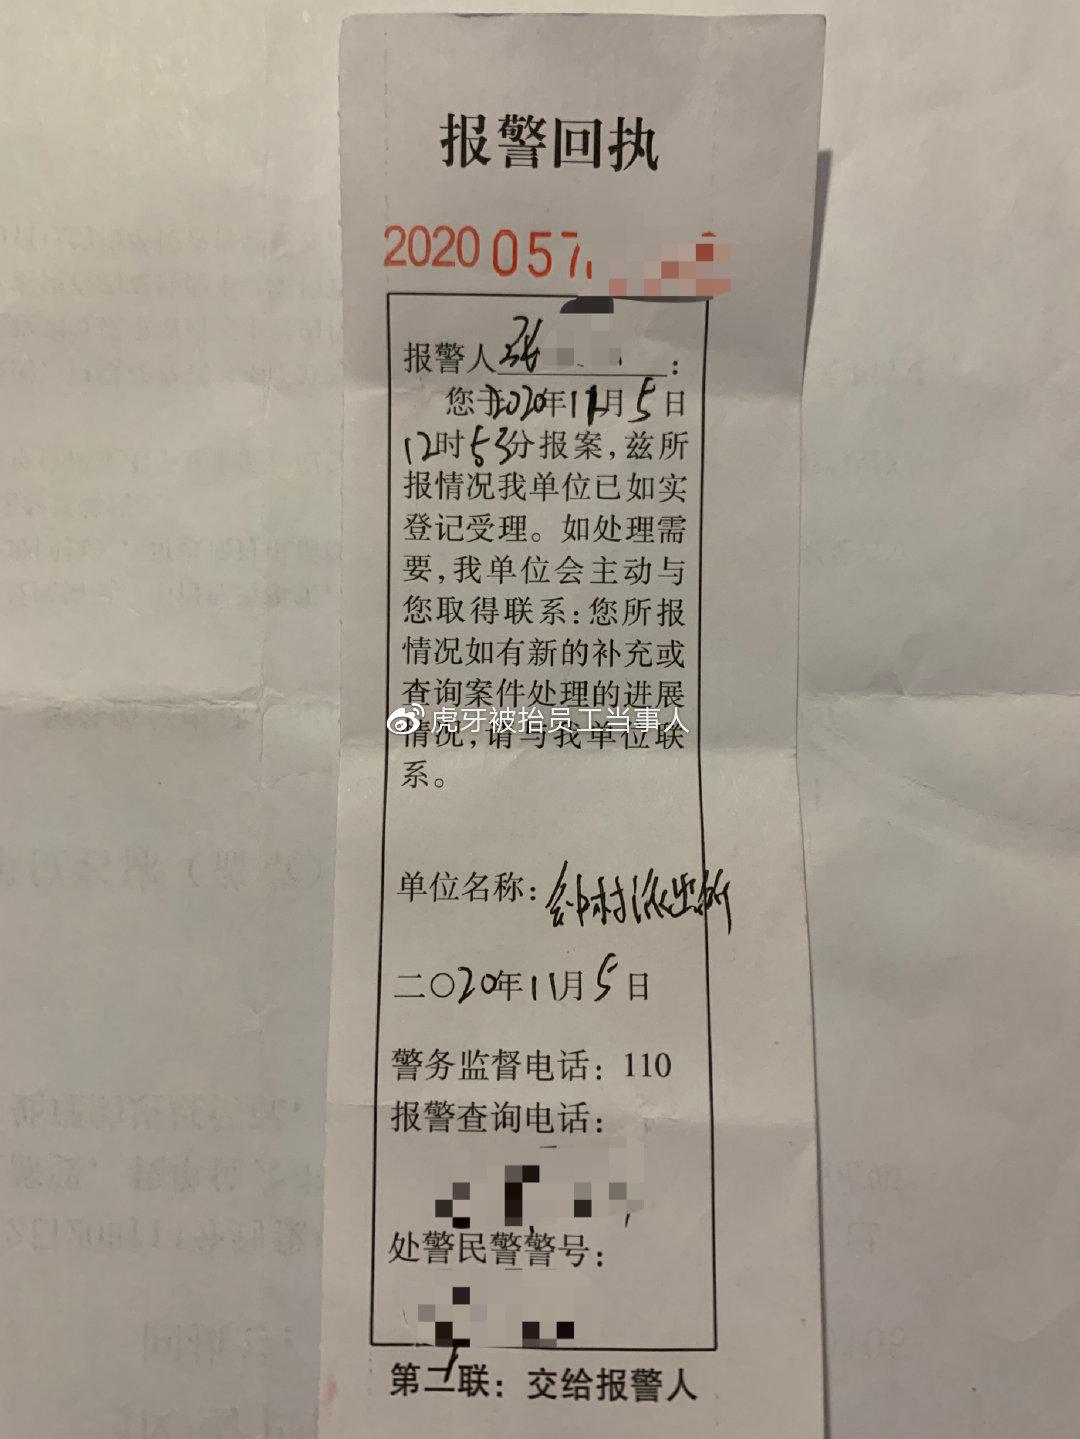 报警回执
2020057
报警人 张 :
您于2020年11月5日
12时53分报案,兹所
报情况我单位已如实
登记受理。如处理需
要,我单位会主动与
您取得联系:您所报
情况如有新的补充或
查询案件处理的进展
虎牙被抬员工当事人
情况,请与我单位联
系。
单位名称:钟村派出所
二〇20年11月5日
警务监督电话:110
报警查询电话:
处警民警警号:
第二联:交给报警人